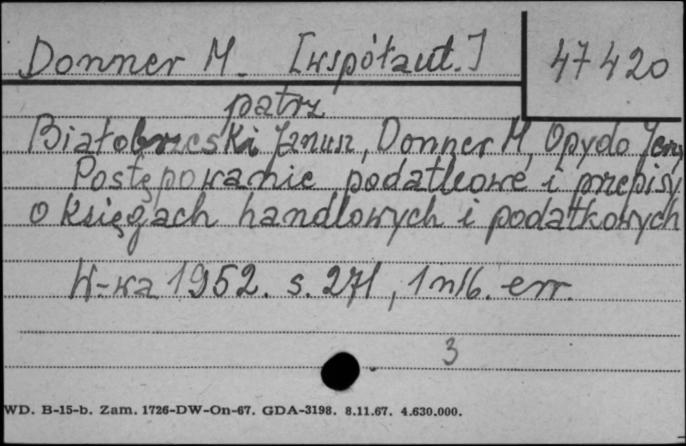 Donner M. [współaut.]
47420
patrz
Białobrzeski Janusz, Donner M, Opydo Jerzy
Postępowanie podatkowe i przepisy
o księgach handlowych i podatkowych
W-wa 1952. s. 271, 1 nlb. err.
3
WD. B-15-b. Zam. 1726-DW-On-67. GDA-3198. 8.11.67. 4.630.000.